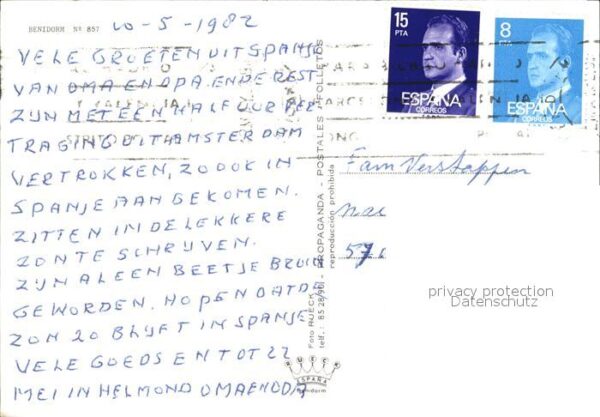 BENIDORM Nº 857
10-5-1982
VELE GROETEN UIT SPANJE
VAN OMA EN OPA EN DE REST
ZIJN MET EEN HALF UUR VER
TRAGING UIT AMSTERDAM
VERTROKKEN, ZO OOK IN
SPANJE AAN GEKOMEN.
ZITTEN IN DE LEKKERE
ZON TE SCHRIJVEN.
ZIJN ALEEN BEETJE BRUIN
GEWORDEN. HOPEN DAT DE
ZON ZO BLIJFT IN SPANJE
VELE GOEDS EN TOT 22
MEI IN HELMOND OMA EN OPA
Foto RUECK
PROPAGANDA - POSTALES - FOLLETOS
reproducción prohibida
RUECK
ESPAÑA
Benidorm
15
PTA
ESPAÑA
CORREOS
8
PTA
ESPAÑA
CORREOS
Fam Verstappen
privacy protection
Datenschutz